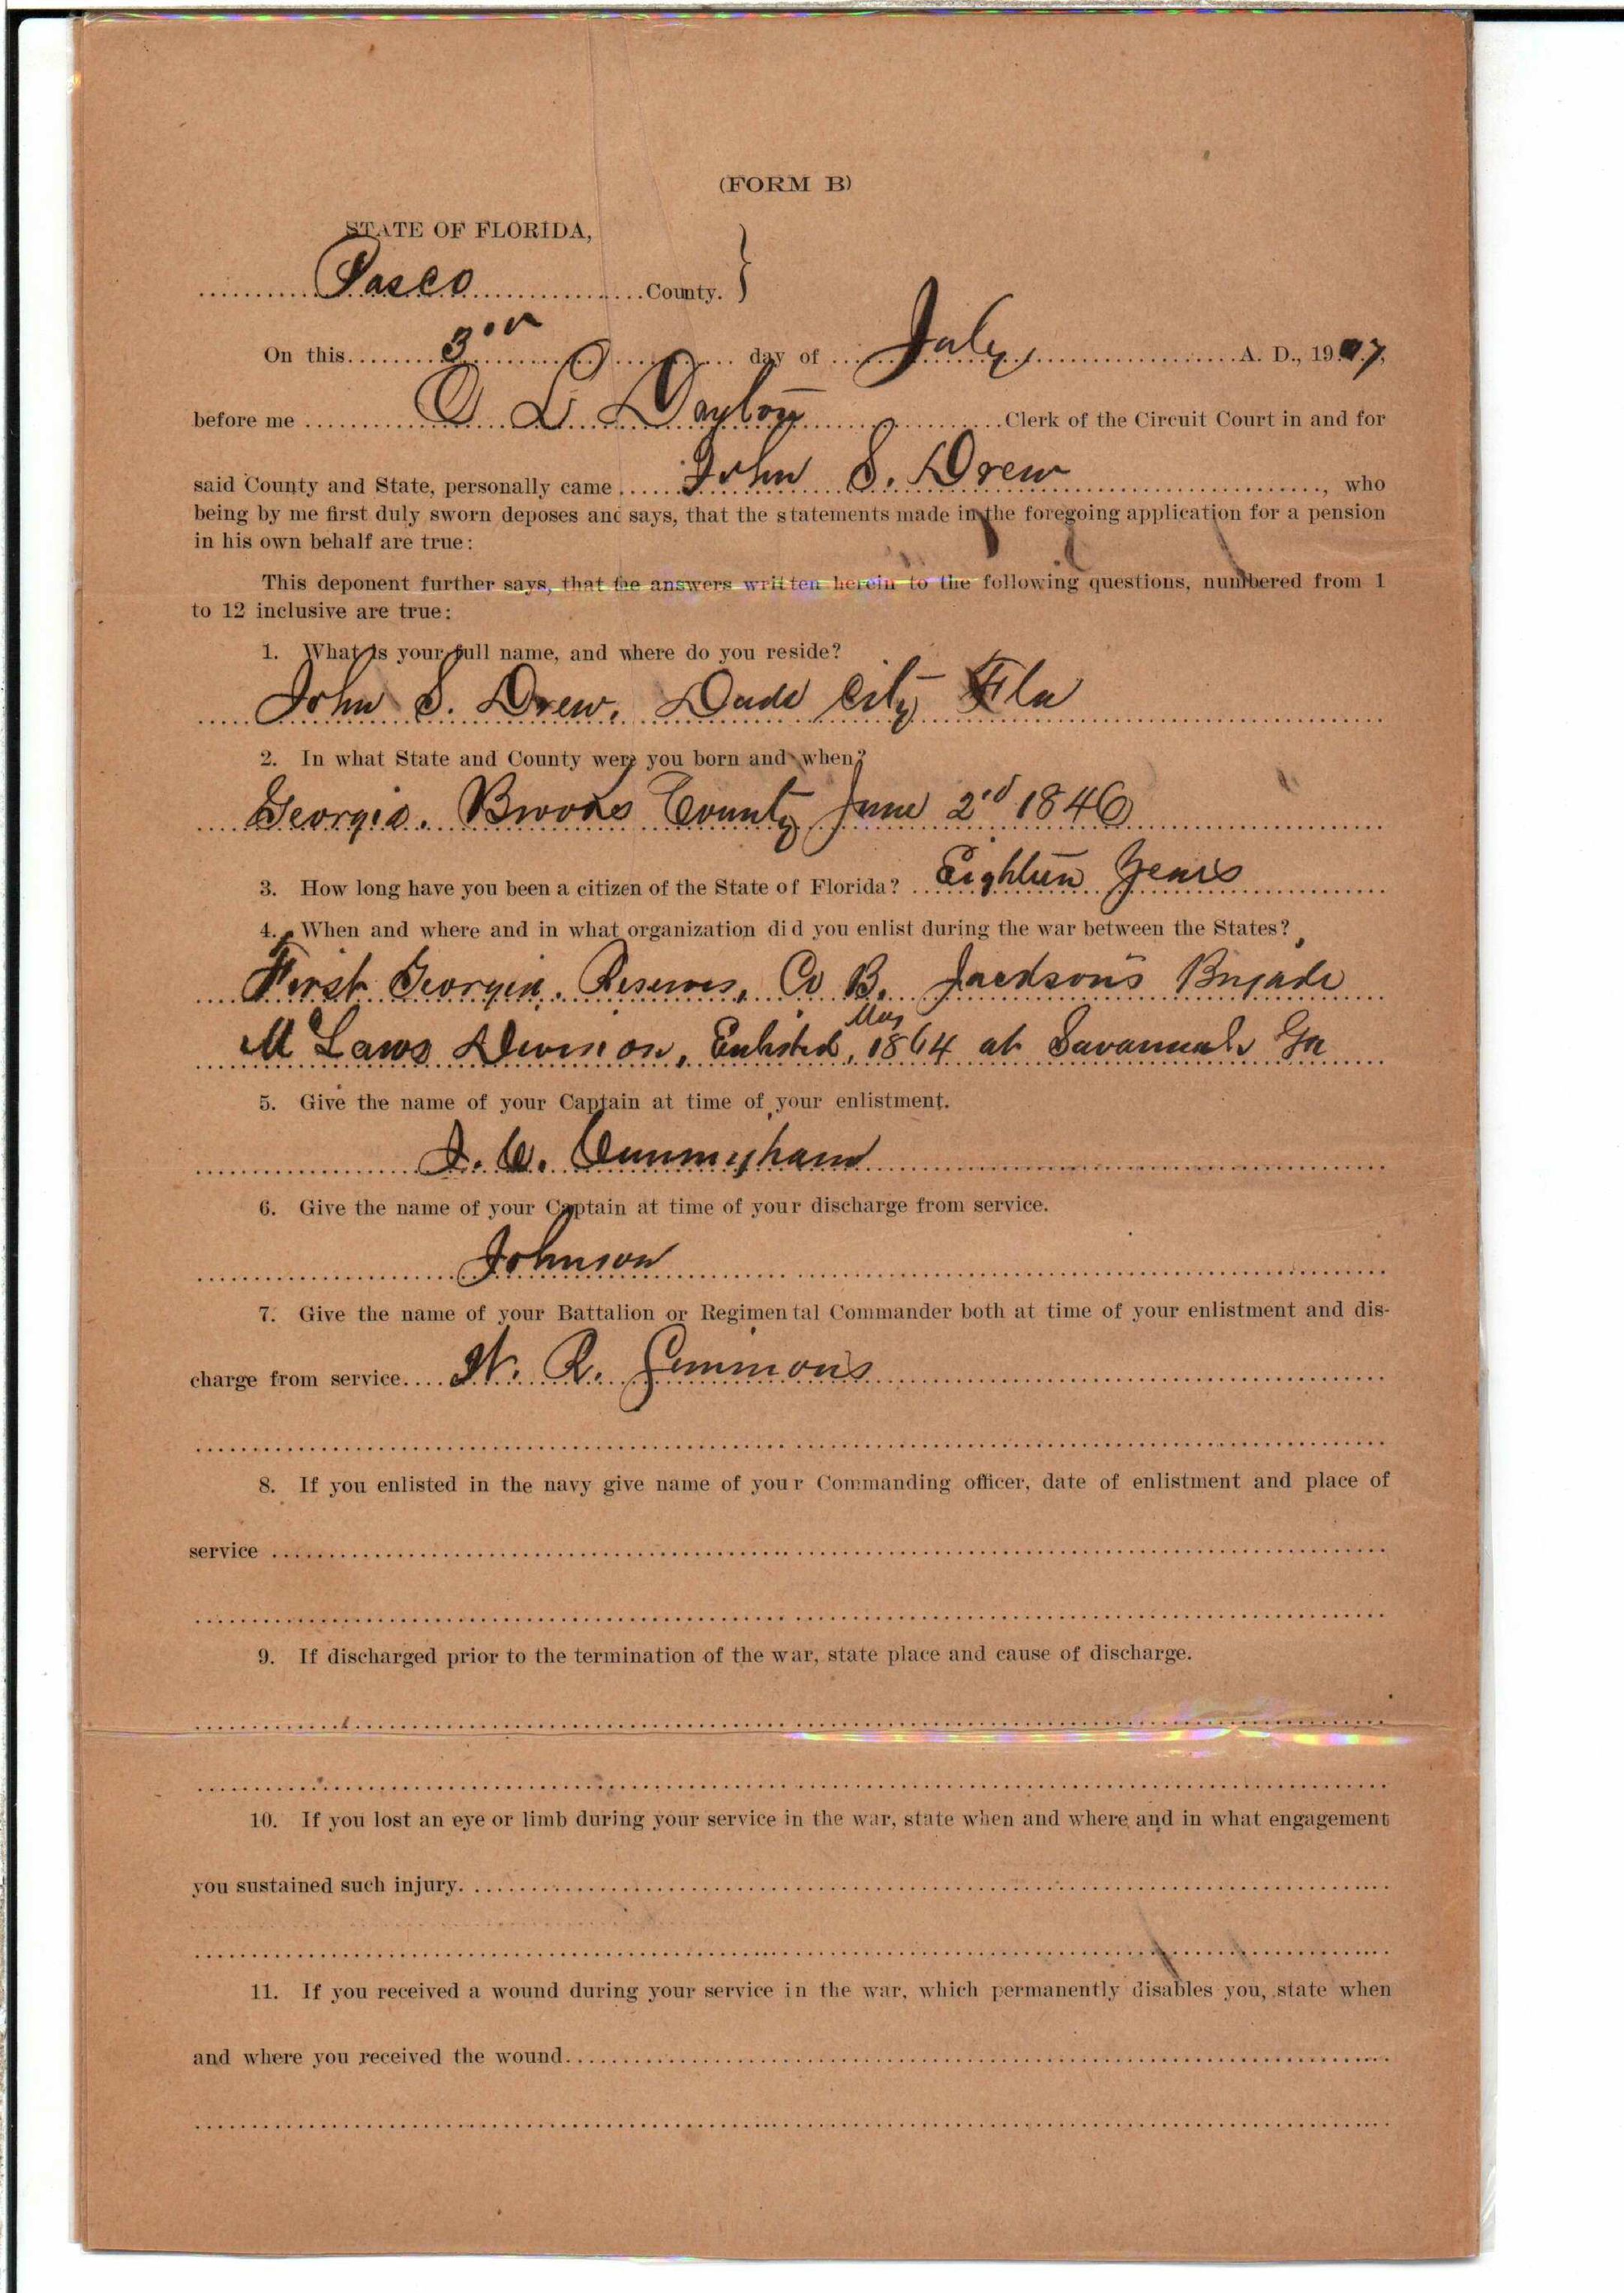 (FORM B)
STATE OF FLORIDA,
Pasco County.
On this 3rd day of July A. D., 1907,
before me O L Dayton Clerk of the Circuit Court in and for
said County and State, personally came John S. Drew, who
being by me first duly sworn deposes and says, that the statements made in the foregoing application for a pension
in his own behalf are true:
This deponent further says, that the answers written herein to the following questions, numbered from 1
to 12 inclusive are true:
1. What is your full name, and where do you reside?
John S. Drew. Dade City Fla
2. In what State and County were you born and when?
Georgia. Brooks County June 2d 1846
3. How long have you been a citizen of the State of Florida? Eighteen Years
4. When and where and in what organization did you enlist during the war between the States?
First Georgia. Reserves, Co B. Jackson's Brigade
May
Mc Laws Division, Enlisted, 1864 at Savannah Ga
5. Give the name of your Captain at time of your enlistment.
Cunningham
6. Give the name of your Captain at time of your discharge from service.
Johnson
7. Give the name of your Battalion or Regimental Commander both at time of your enlistment and dis-
charge from service. W. R. Simmons
8. If you enlisted in the navy give name of your Commanding officer, date of enlistment and place of
service
9. If discharged prior to the termination of the war, state place and cause of discharge.
10. If you lost an eye or limb during your service in the war, state when and where and in what engagement
you sustained such injury.
11. If you received a wound during your service in the war, which permanently disables you, state when
and where you received the wound.